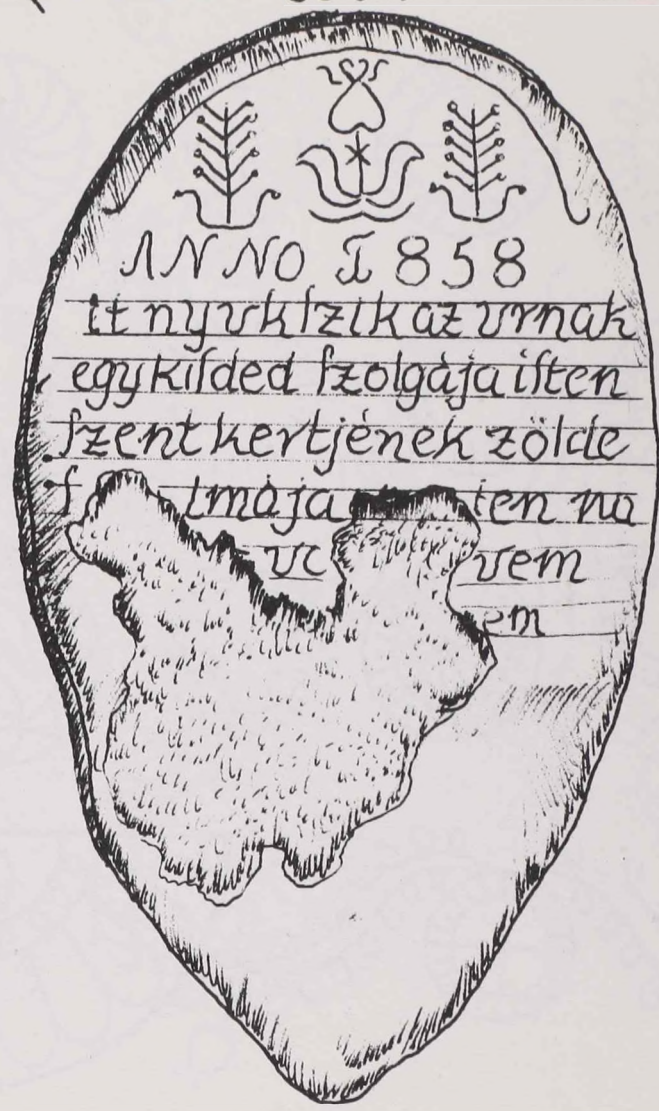 ANNO 1858
it nyukſzik az urnak
egy kiſded ſzolgája iſten
ſzent kertjének zölde
tmája ten na
vem
em